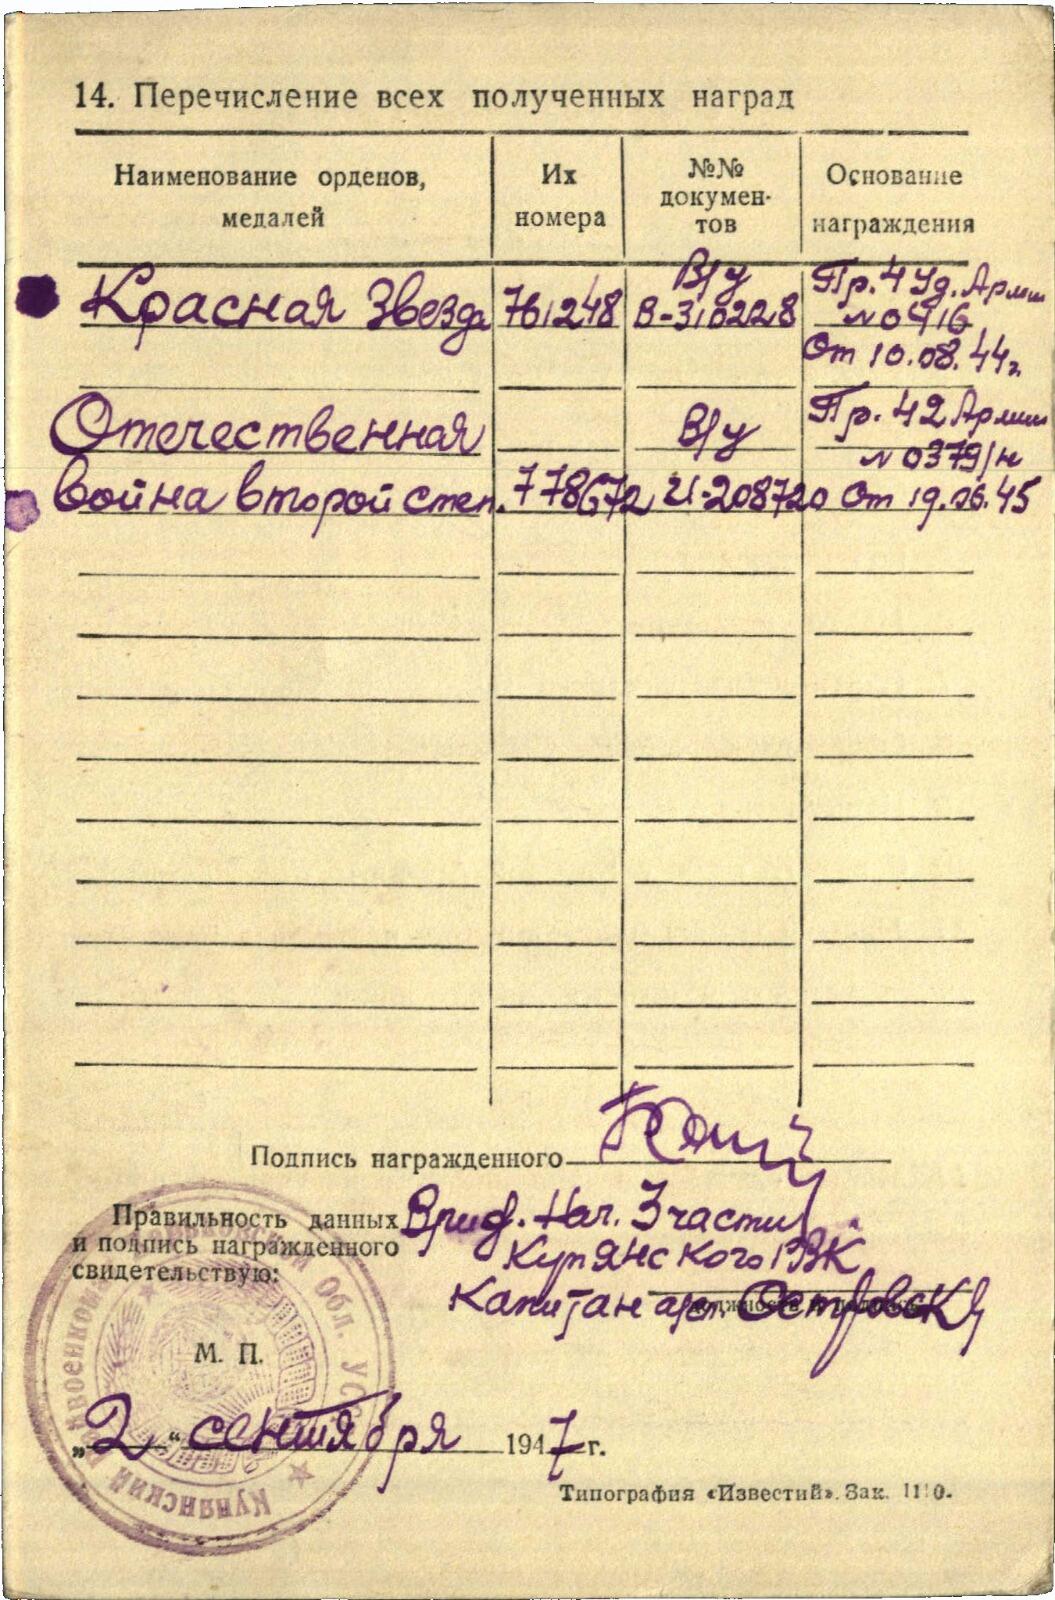 14. Перечисление всех полученных наград
Наименование орденов, медалей
Их номера
№№ докумен-
тов
Основание награждения
Красная Звезда 761248 В/у В-310228 Пр. 4 Уд. Армии
№ 0416
От 10.08.44г.
Отечественная В/у Пр. 42 Армии
№ 0379/н
война второй степ. 778672 И-208720 От 19.06.45
Подпись награжденного
Правильность данных Врид. Нач. 3 части
и подпись награжденного Купянского РВК
свидетельствую:
Капитан арт. Островск
М. П.
„2“ сентября 1947 г.
Типография «Известий». Зак. 1110.
Купянский Обл. УССР